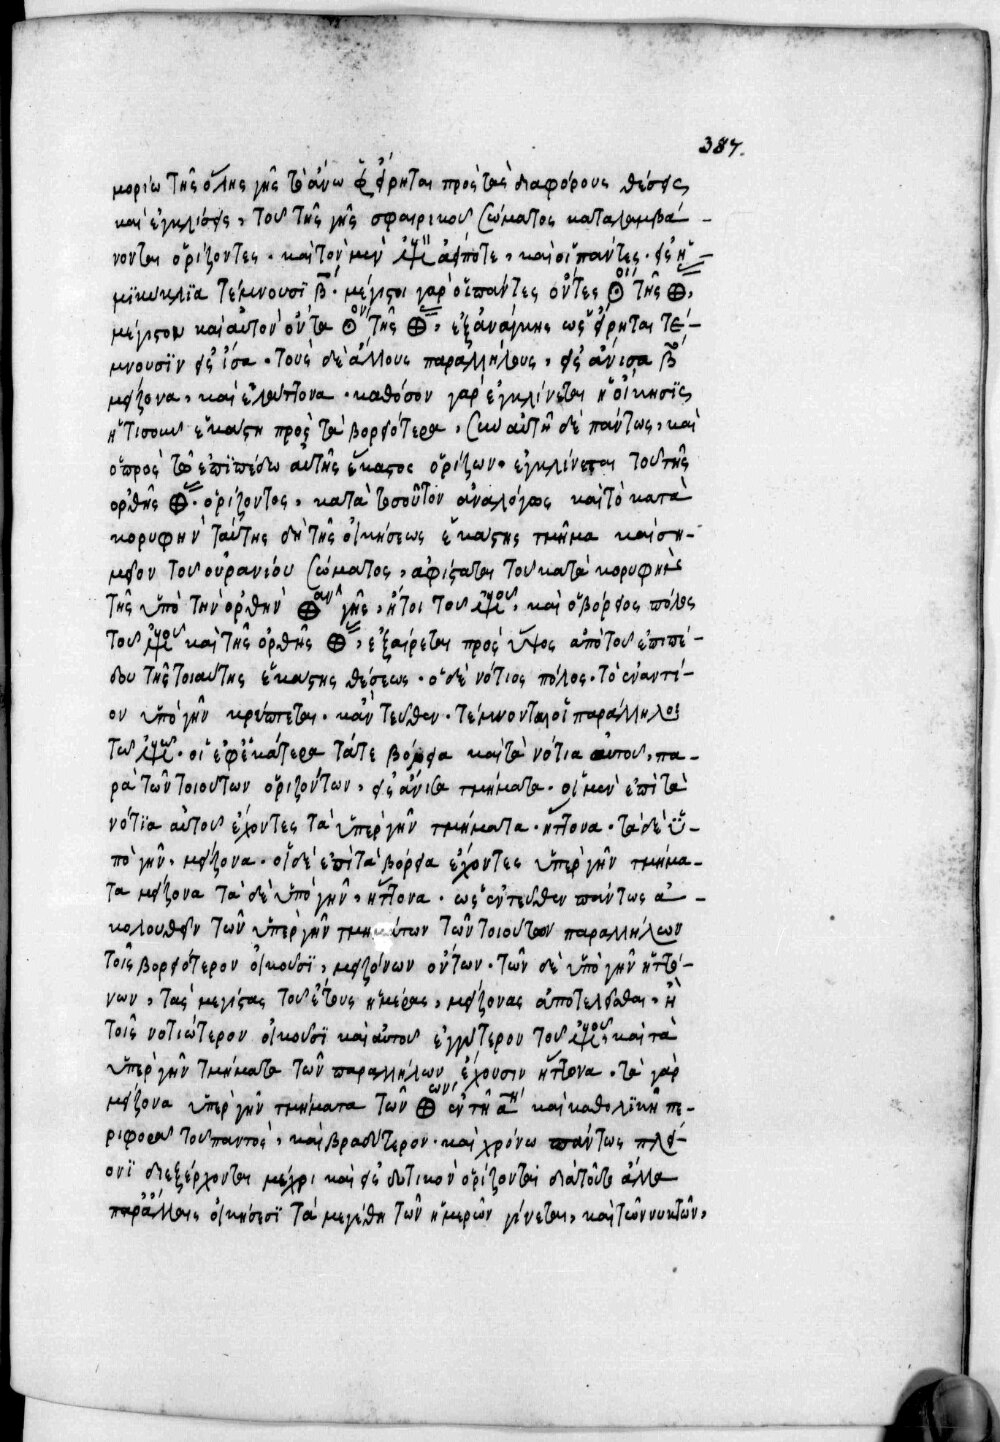 387.
μορίω τῆς ὅλης γῆς τὸ ἄνω εἴρηται πρὸς τὰς διαφόρους θέσεις
καὶ ἐγκλίσεις, τοῦ τῆς γῆς σφαιρικοῦ σώματος καταλαμβά-
νονται ὁρίζοντες. καὶ τὸν μὲν ἀείποτε, καὶ οἱ πάντες. εἰς ἡ-
μικύκλϊα τέμνουσϊ β. μέγιστοι γὰρ οἱ πάντες ὄντες ⊙οι τῆς ⊕,
μέγιστον καὶ αὐτὸν ὄντα ⊙ον τῆς ⊕, ἐξανάγκης ὡς εἴρηται τέ-
μνουσϊν εἰς ἴσα. τοὺς δὲ ἄλλους παραλλήλους, εἰς ἄνισα β
μείζονα, καὶ ἐλάττονα. καθόσον γὰρ ἐγκλίνεται ἡ οἴκησϊς
ἥτισουν ἑκάστη πρὸς τὰ βορειότερα, σὺν αὐτῆ δὲ πάντως, καὶ
ὁ πρὸς τῶ ἐπϊπέδω αὐτῆς ἕκαστος ὁρίζων. ἐγκλίνεται τοῦ τῆς
ὀρθῆς ⊕. ὁρίζοντος, κατὰ τοσοῦτον ἀναλόγως καὶ τὸ κατὰ
κορυφὴν ταύτης δὴ τῆς οἰκήσεως ἑκάστης τμῆμα καὶ ση-
μεῖον τοῦ οὐρανίου σώματος, ἀφίσταται τοῦ κατὰ κορυφὴν
τῆς ὑπὸ τὴν ὀρθὴν ⊕αν γῆς, ἤτοι τοῦ καὶ ὁ βόρειος πόλος
τοῦ καὶ τῆς ὀρθῆς ⊕, ἐξαίρεται πρὸς ὕψος ἀπὸ τοῦ ἐπιπέ-
δου τῆς τοιαύτης ἑκάστης θέσεως. ὁ δὲ νότιος πόλος. τὸ ἐναντί-
ον ὑπὸ γῆν κρύπτεται. κἀντεῦθεν. τέμνονται οἱ παράλληλοι
τῶ οἱ ἐφ' ἑκάτερα τάτε βόρεια καὶ τὰ νότια αὐτοῦ, πα-
ρὰ τῶν τοιούτων ὁριζόντων, εἰς ἄνισα τμήματα. οἱ μὲν ἐπὶ τὰ
νότϊα αὐτοῦ ἔχοντες τὰ ὑπὲρ γῆν τμήματα. ἥττονα. τὰ δὲ ὑ-
πὸ γῆν, μείζονα. οἱ δὲ ἐπὶ τὰ βόρεια ἔχοντες ὑπὲρ γῆν τμήμα-
τα μείζονα τὰ δὲ ὑπὸ γῆν, ἥττονα. ὡς ἐντεῦθεν πάντως ἀ-
κολουθεῖν τῶν ὑπὲρ γῆν τμημάτων τῶν τοιούτων παραλλήλων
τοῖς βορειότερον οἰκοῦσϊ, μειζόνων ὄντων. τῶν δὲ ὑπὸ γῆν ἡττό-
νων, τὰς μεγίστας τοῦ ἔτους ἡμέρας, μείζονας ἀποτελεῖσθαι, ἢ
τοῖς νοτιώτερον οἰκοῦσϊ καὶ αὐτοῦ ἐγγύτερον τοῦ καὶ τὰ
ὑπὲρ γῆν τμήματα τῶν παραλλήλων ἔχουσιν ἥττονα. τὰ γὰρ
μείζονα ὑπὲρ γῆν τμήματα τῶν ⊕ων ἐν τῆ α καὶ καθολϊκῆ πε-
ριφορᾶ τοῦ παντὸς, καὶ βραδύτερον. καὶ χρόνω πάντως πλεί-
ονϊ διεξέρχονται μέχρι καὶ εἰς δυτικὸν ὁρίζονται διὰ τοῦτο ἄλλα
παράλλαις οἰκήσεσϊ τὰ μεγέθη τῶν ἡμερῶν γίνεται, καὶ τῶν νυκτῶν,